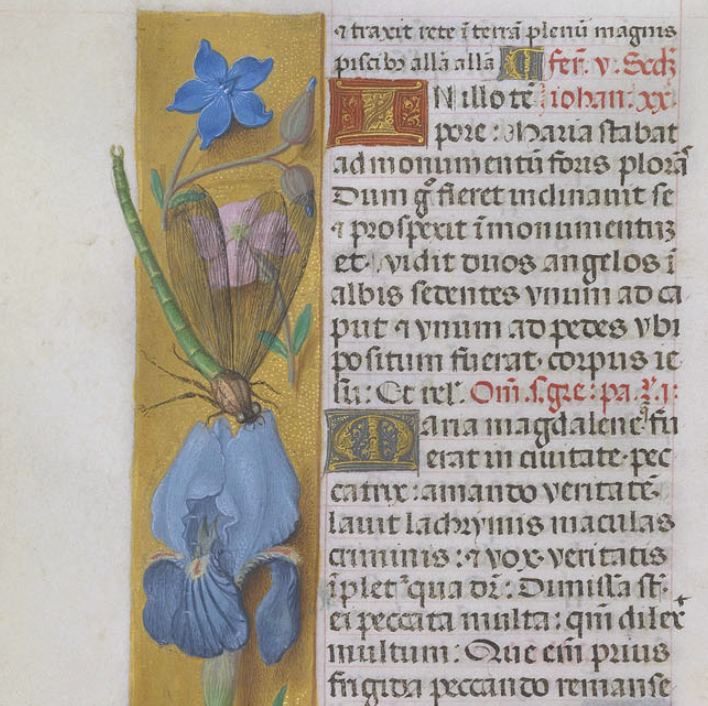 ⁊ traxit rete ĩ terrã plenũ magnis
piscibꝫ allã allã fer̃. v. Scdꝫ
IN illo tẽ Iohan: xx.
pore: Maria stabat
ad monumentũ foris plorãs
Dum g̊ fleret inclinauit se
⁊ prospexit ĩ monumentuꝫ
et vidit duos angelos ĩ
albis sedentes vnum ad ca
put ⁊ vnum ad pedes vbi
positum fuerat corpus ie
su: Et rel̃. Om̃. s. gre: pa.
Maria magdalene q̃ fu
erat in ciuitate pec
catrix: amando veritatẽ
lauit lachrymis maculas
criminis: ⁊ vox veritatis
ĩplet᷒ qua dr̃: Dimissa st̃
ei peccata multa: qm̃ dilex̃
multum: Que em̃ prius
frigida peccando remanse